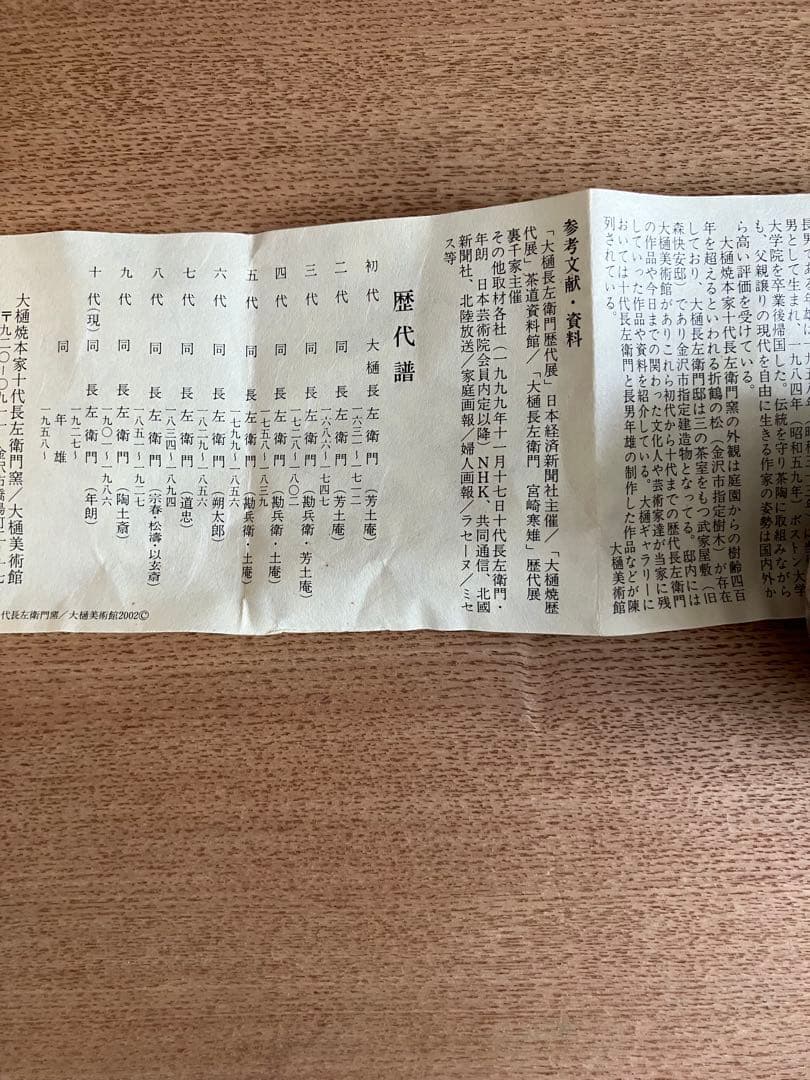 男として生まれ、一九八四年(昭和五九年)ボストン大学
大学院を卒業後帰国した。伝統を守り茶陶に取組みながら
も、父親譲りの現代を自由に生きる作家の姿勢は国内外か
ら高い評価を受けている。
大樋焼本家十代長左衛門窯の外観は庭園からの樹齢四百
年を超えるといわれる折鶴の松(金沢市指定樹木)が存在
しており、大樋長左衛門邸は三の茶室をもつ武家屋敷(旧
森快安邸)であり金沢市指定建造物となってる。邸内には
大樋美術館がありこれら初代から十代までの歴代長左衛門
の作品や今日までの関わった文化人や芸術家達が当家に残
していった作品や資料を紹介している。大樋ギャラリーに
おいては十代長左衛門と長男年雄の制作した作品などが陳
列されている。
大樋美術館
参考文献・資料
「大樋長左衛門歴代展」日本経済新聞社主催/「大樋焼歴
代展」茶道資料館/「大樋長左衛門 宮崎寒雉」歴代展
裏千家主催
その他取材各社(一九九九年十一月十七日十代長左衛門・
年朗 日本芸術院会員内定以降)NHK、共同通信、北國
新聞社、北陸放送/家庭画報/婦人画報/ラセーヌ/ミセ
ス等
歴代譜
初代 大樋長左衛門(芳土庵)
一六三一~一七一二
二代 同 長左衛門(芳土庵)
一六八六~一七四七
三代 同 長左衛門(勘兵衛・芳土庵)
一七二八~一八〇二
四代 同 長左衛門(勘兵衛・土庵)
一七五八~一八三九
五代 同 長左衛門(勘兵衛・土庵)
一七九九~一八五六
六代 同 長左衛門(朔太郎)
一八二九~一八五六
七代 同 長左衛門(道忠)
一八三四~一八九四
八代 同 長左衛門(宗春・松濤・以玄斎)
一八五一~一九二七
九代 同 長左衛門(陶土斎)
一九〇一~一九八六
十代(現)同 長左衛門(年朗)
一九二七~
同 年雄
一九五八~
大樋焼本家十代長左衛門窯/大樋美術館
〒九二〇-〇九一一 金沢市橋場町二-一七
代長左衛門窯/大樋美術館2002©